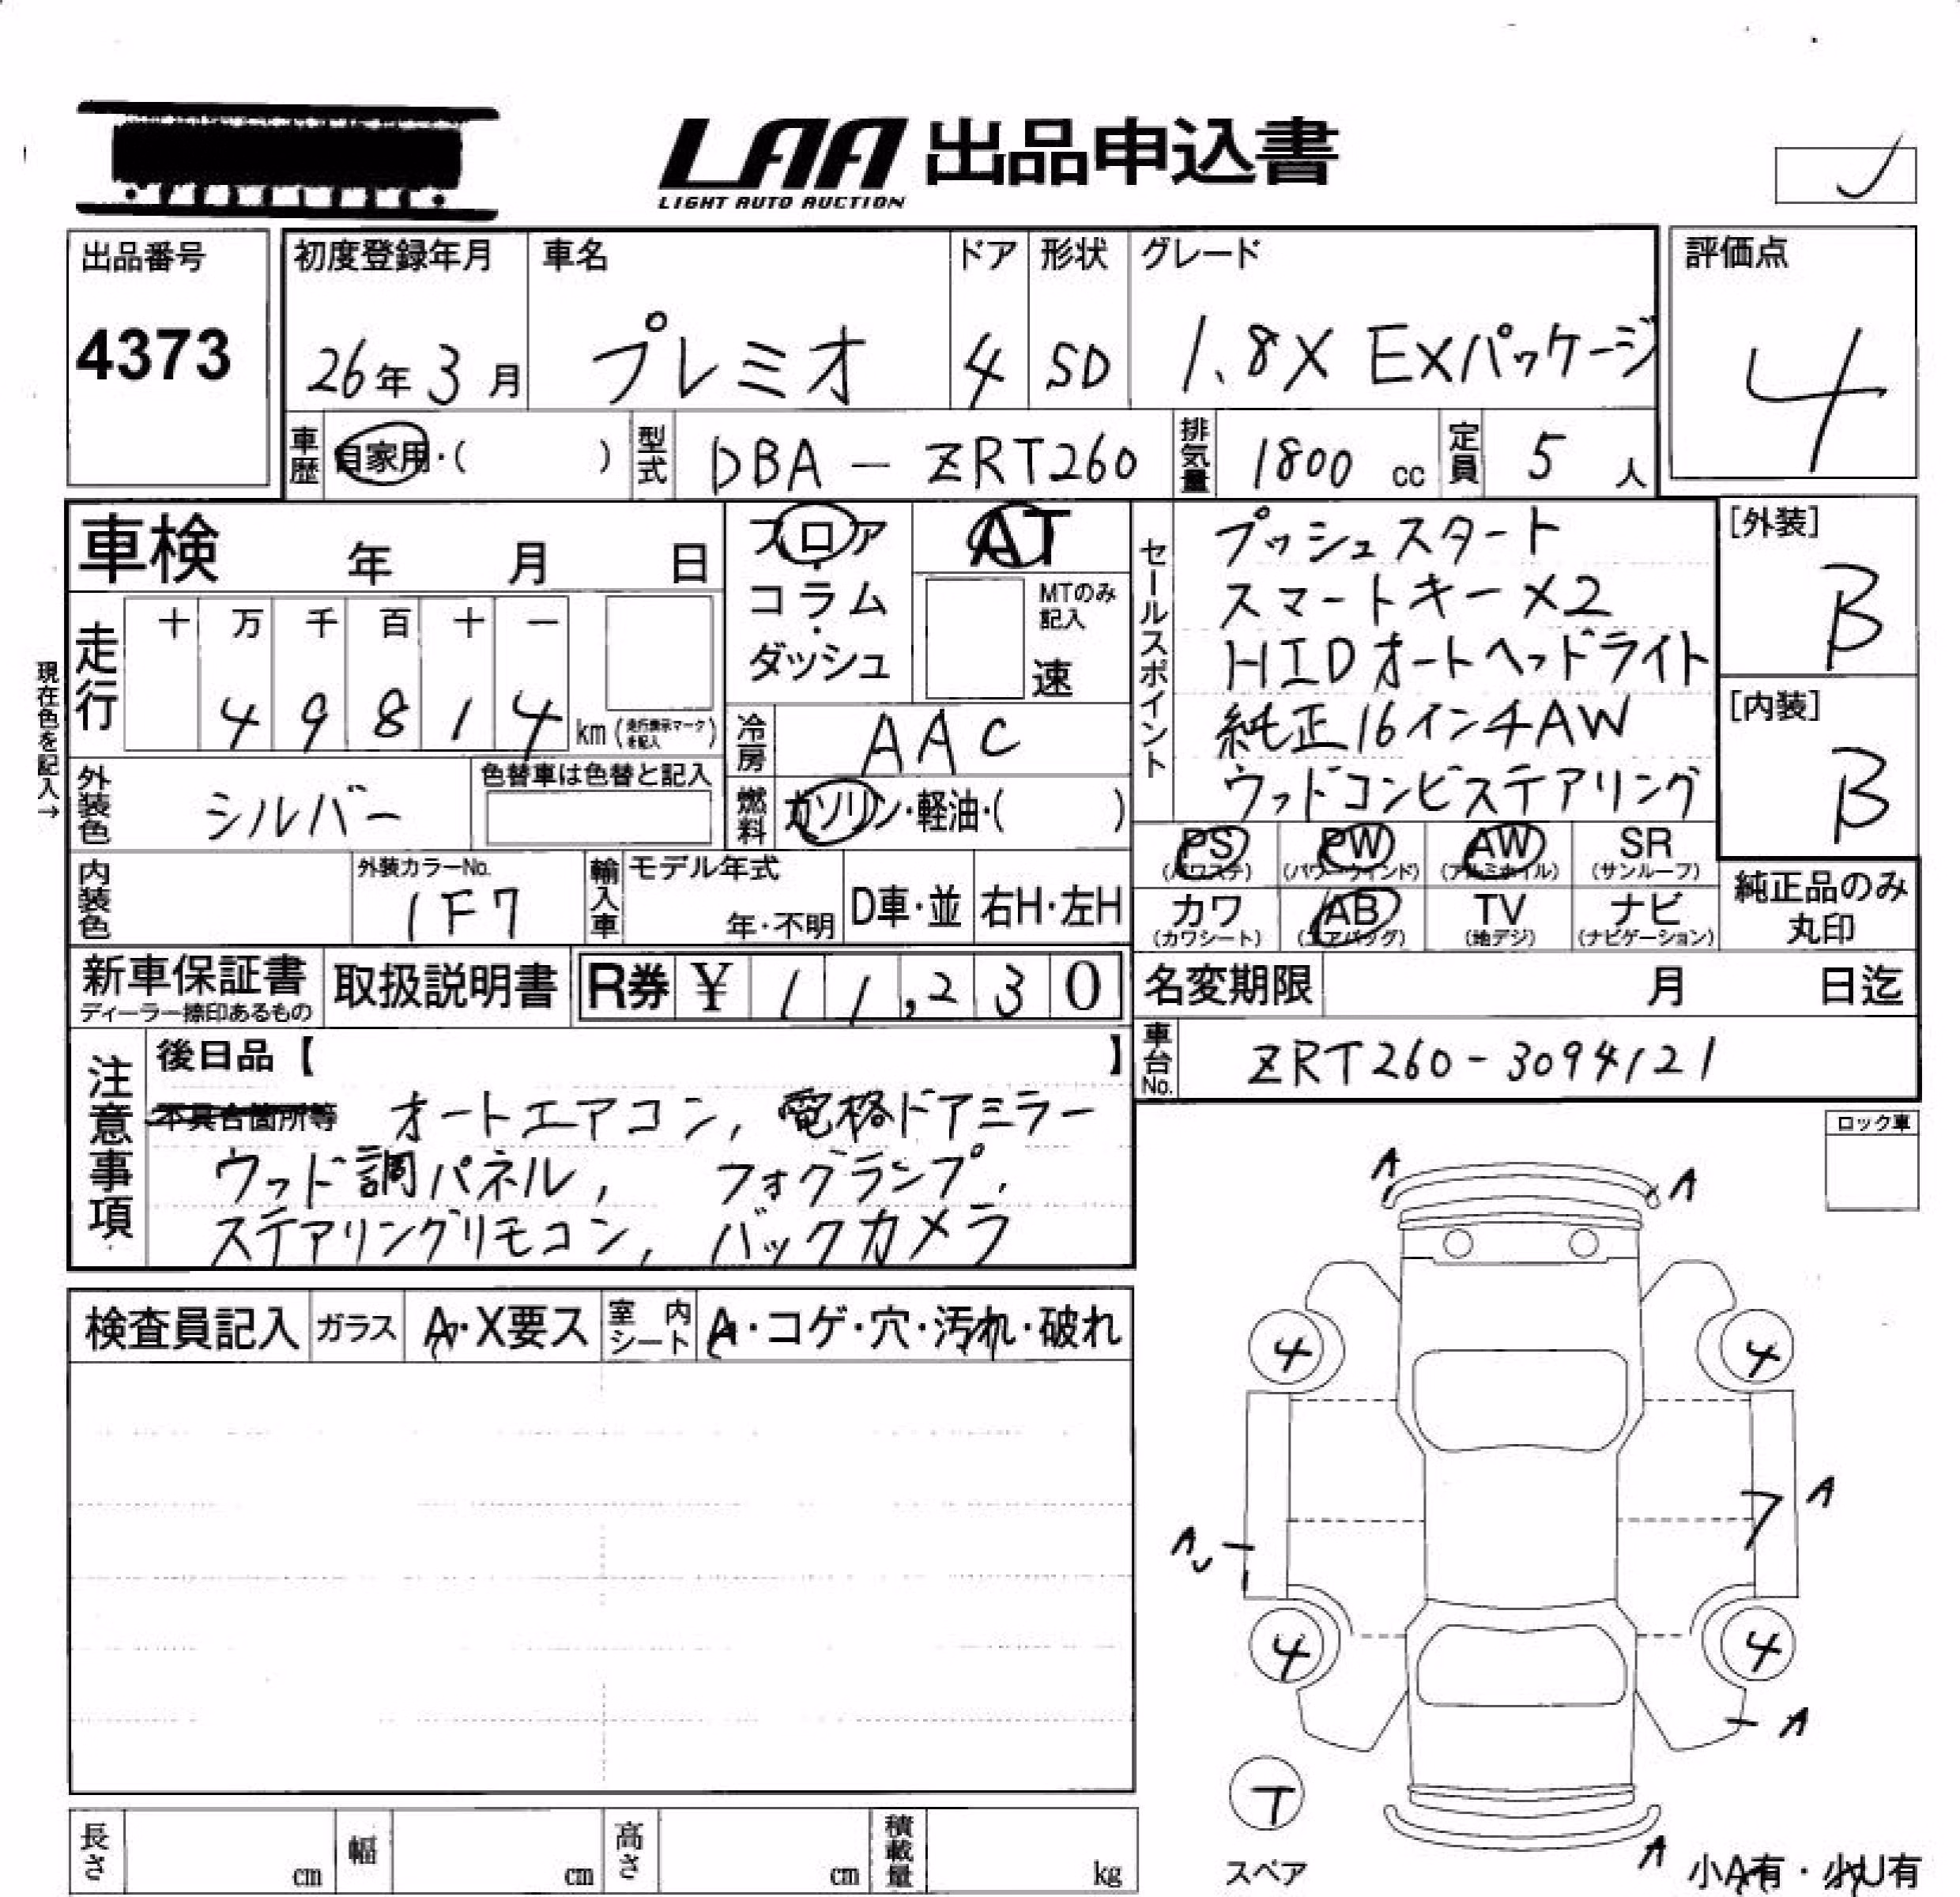 LAA 出品申込書
LIGHT AUTO AUCTION
出品番号
4373
初度登録年月
26年3月
車名
プレミオ
ドア
4
形状
SD
グレード
1.8X EXパッケージ
評価点
4
車歴 自家用・( )
型式 DBA-ZRT260
排気量 1800 cc
定員 5人
車検 年 月 日
フロア・コラム・ダッシュ
AT
MTのみ記入
速
セールスポイント
プッシュスタート
スマートキー×2
HIDオートヘッドライト
純正16インチAW
ウッドコンビステアリング
[外装]
B
[内装]
B
現在色を記入→
走行
十 万 千 百 十 一
4 9 8 1 4 km (走行表示マークを記入)
冷房 AAC
外装色 シルバー
色替車は色替と記入
燃料 ガソリン・軽油・( )
PS (パワステ)
PW (パワーウインド)
AW (アルミホイル)
SR (サンルーフ)
カワ (カワシート)
AB (エアバッグ)
TV (地デジ)
ナビ (ナビゲーション)
純正品のみ丸印
内装色
外装カラーNo.
1F7
輸入車
モデル年式
年・不明
D車・並
右H・左H
新車保証書
ディーラー捺印あるもの
取扱説明書
R券 ¥ 11,230
名変期限 月 日迄
車台No. ZRT260-3094121
注意事項
後日品【 】
不具合箇所等 オートエアコン, 電格ドアミラー
ウッド調パネル, フォグランプ,
ステアリングリモコン, バックカメラ
ロック車
検査員記入
ガラス A・X要ス
室内シート A・コゲ・穴・汚れ・破れ
A A
4 4
A
7
A
4 4
A
T
スペア
A
小A有・小U有
長さ cm
幅 cm
高さ cm
積載量 kg